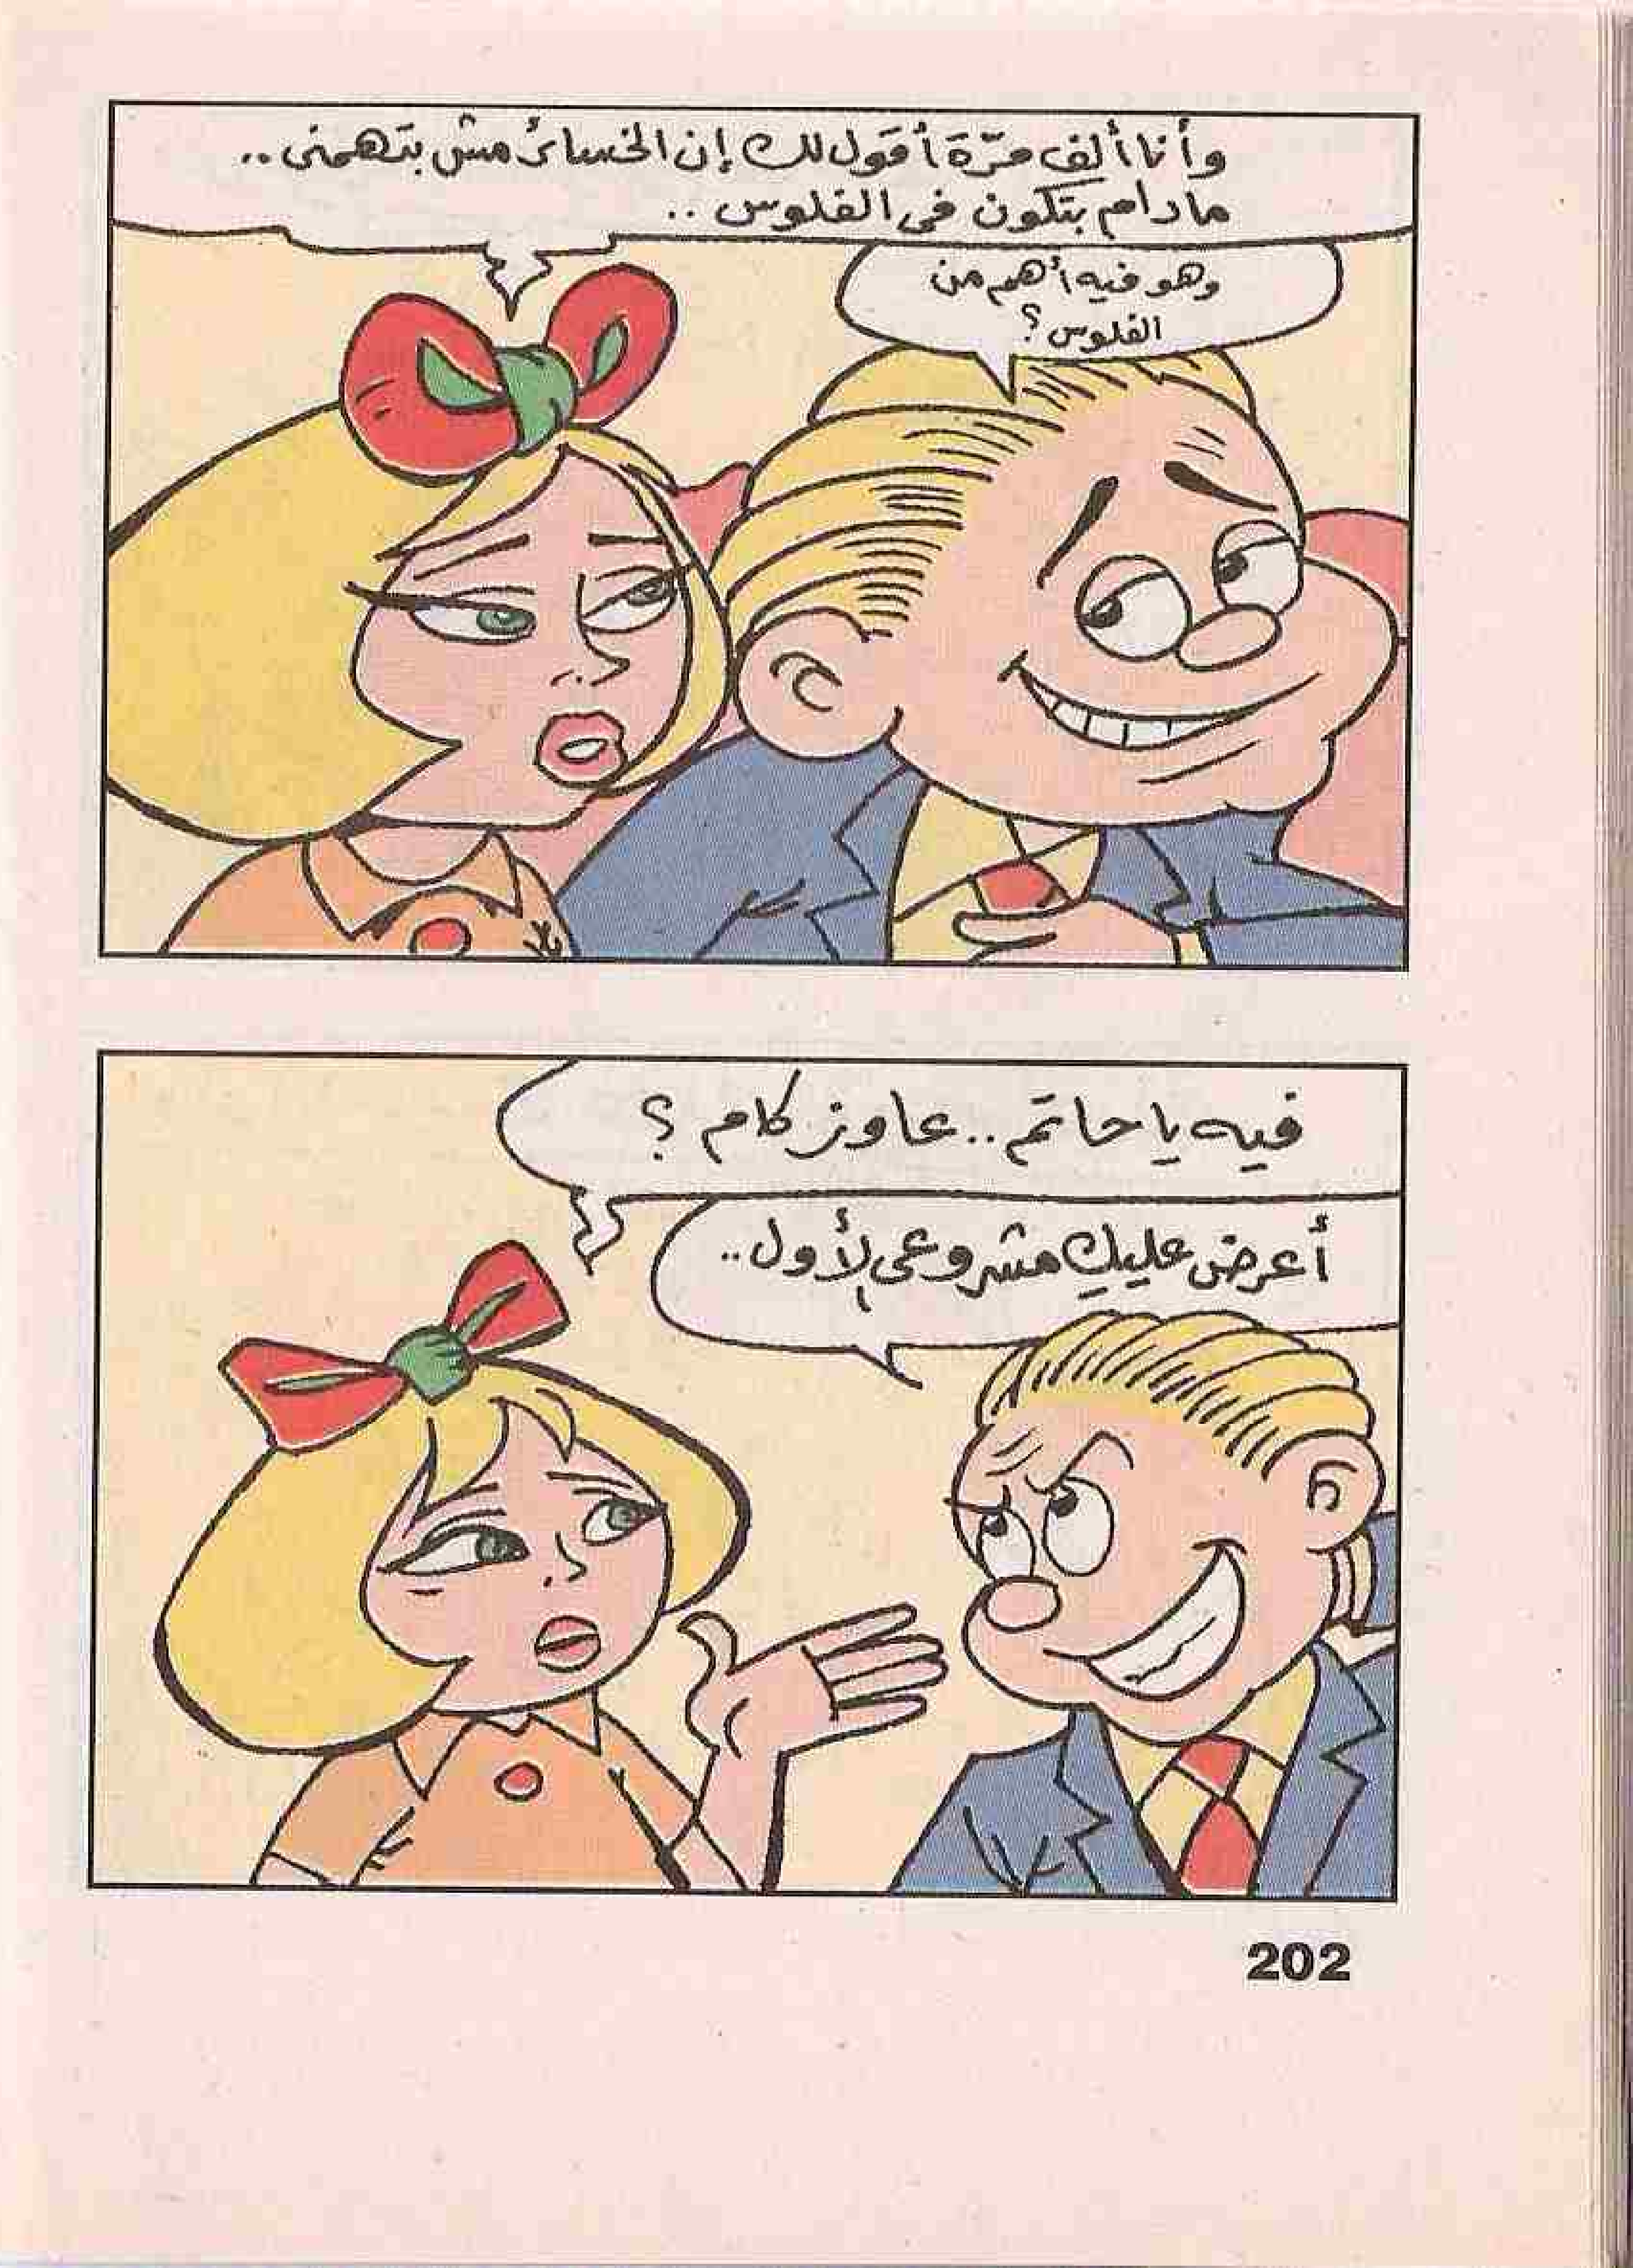 وأنا ألف مرّة أقول لك إن الخسائر مش بتهمنى ..
مادام بتكون فى الفلوس ..
وهو فيه أهم من
الفلوس ؟
فيه ياحاتم .. عاوز كام ؟
أعرض عليكِ مشروعى الأول ..
202